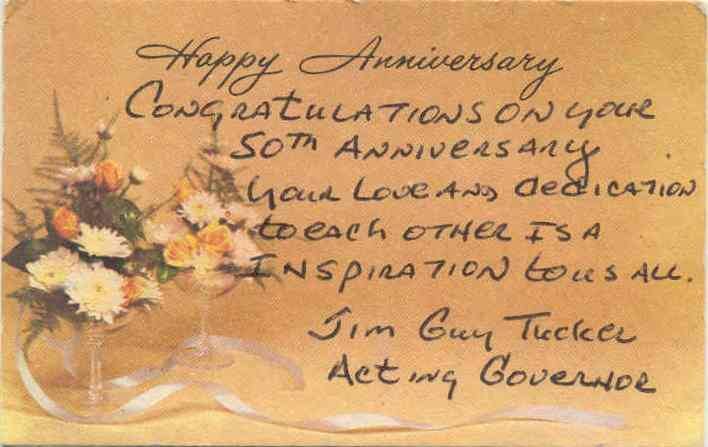 Happy Anniversary
CONGRATULATIONS ON your
50TH ANNIVERSARY
your Love AND dedication
to each OTHER IS A
INSPIRATION to us ALL.
Jim Guy Tucker
Acting Governor